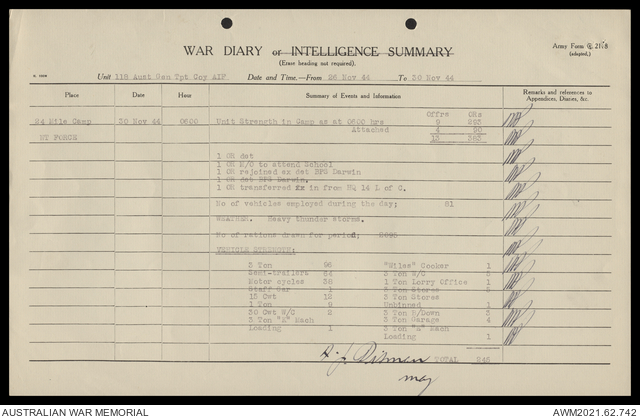 WAR DIARY or INTELLIGENCE SUMMARY
(Erase heading not required).
Army Form C. 2118
(adapted.)
Unit 118 Aust Gen Tpt Coy AIF. Date and Time.—From 26 Nov 44 To 30 Nov 44
Place Date Hour Summary of Events and Information Remarks and references to
Appendices, Diaries, &c.
Offrs ORs
24 Mile Camp 30 Nov 44 0600 Unit Strength in Camp as at 0600 hrs 9 293
Attached 4 90
NT FORCE 13 383
1 OR det
1 OR M/C to attend School
1 OR rejoined ex det BPG Darwin
1 OR det BPG Darwin.
1 OR transferred in from HQ 14 L of C.
No of vehicles employed during the day; 81
WEATHER. Heavy thunder storms.
No of rations drawn for period;
VEHICLE STRENGTH:
3 Ton 96 "Wiles" Cooker 1
Semi-trailers 54 3 Ton W/C 2
Motor cycles 38 1 Ton Lorry Office 1
Staff Car 1 3 Ton Stores
15 Cwt 12 3 Ton Stores
1 Ton 9 Unbinned 1
30 Cwt W/C 2 3 Ton B/Down 3
3 Ton "A" Mach 3 Ton Garage 4
Loading 1 3 Ton "A" Mach
Loading 1
TOTAL 245
Maj
AUSTRALIAN WAR MEMORIAL
AWM2021.62.742